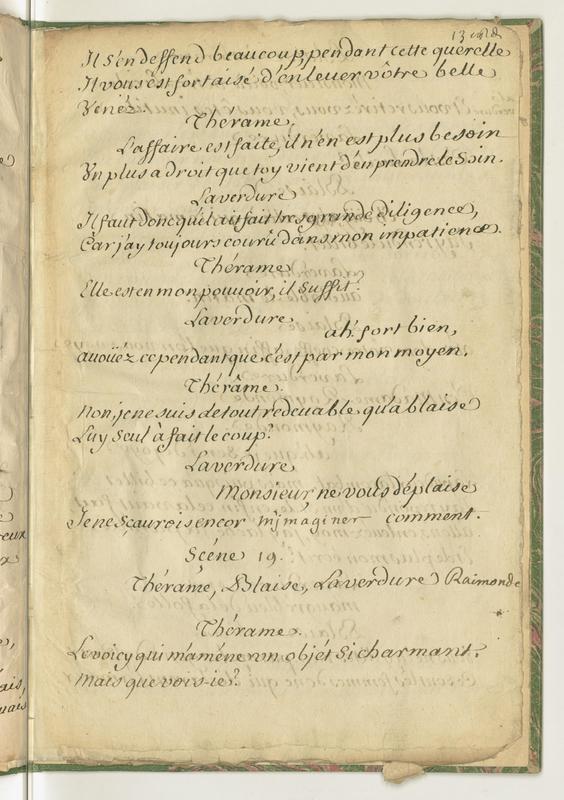 Il s'en deffend beaucoup, pendant cette querelle
Il vous est fort aisé d'enlever vôtre belle
Venéz.
Thérame.
L'affaire est faite, il n'en est plus besoin
Un plus adroit que toy vient d'en prendre le Soin.
Laverdure
Il faut donc qu'il ait fait tres grande diligence,
Car j'ay toujours courû dans mon impatience.
Thérame
Elle est en mon pouvoir, il Suffit.
Laverdure
ah! fort bien,
avoüéz cependant que c'est par mon moyen.
Thérame.
Non, je ne suis de tout redevable qu'a blaise
Luy Seul à fait le coup.
Laverdure
Monsieur ne vous déplaise
Je ne Sçaurois encor m'jmaginer comment.
Scéne 19.
Thérame, Blaise, Laverdure Raimonde
Thérame.
Le voicy qui m'améne un objét Si charmant.
Mais que vois-ie?